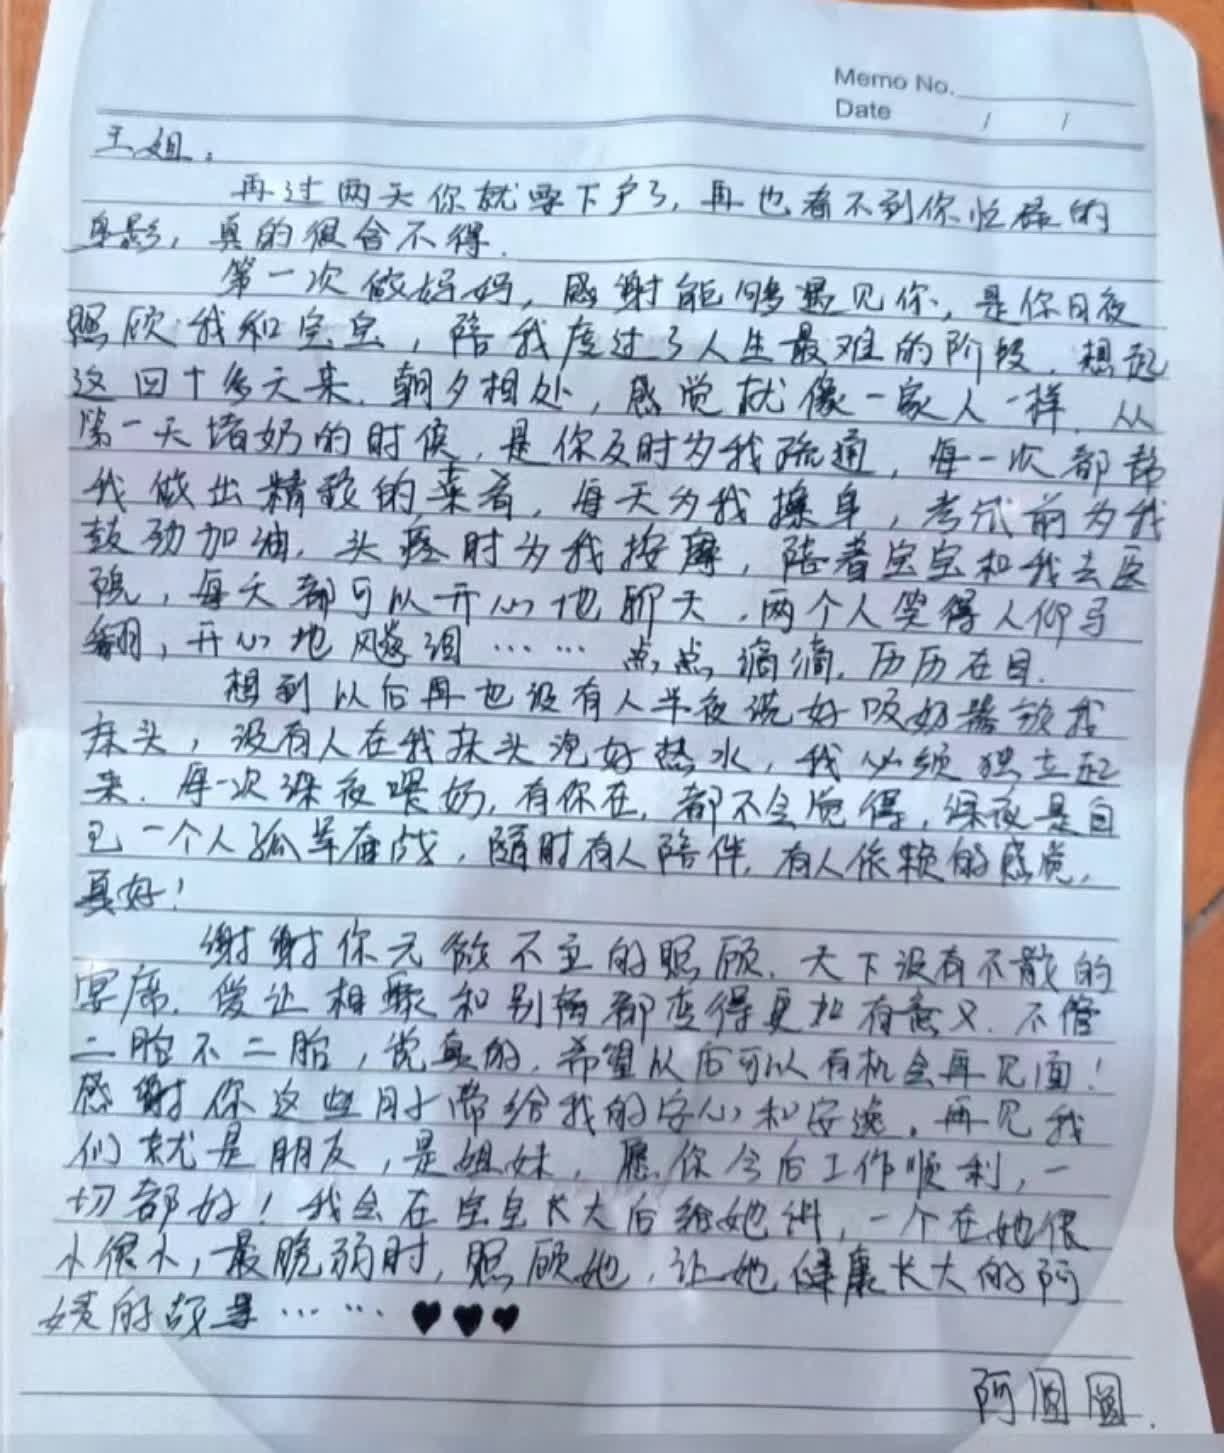 Memo No.
Date / /
王姐:
再过两天你就要下户了,再也看不到你忙碌的
身影,真的很舍不得.
第一次做好妈,感谢能够遇见你,是你日夜
照顾我和宝宝,陪我度过了人生最难的阶段.想起
这四十多天来.朝夕相处,感觉就像一家人一样.从
第一天堵奶的时候,是你及时为我疏通,每一次都帮
我做出精致的菜肴,每天为我擦身,考试前为我
鼓劲加油,头疼时为我按摩,陪着宝宝和我去医
院,每天都可以开心地聊天,两个人笑得人仰马
翻,开心地飚泪…… 点点滴滴,历历在目.
想到以后再也没有人半夜洗好吸奶器放我
床头,没有人在我床头泡好热水,我必须独立起
来.每一次深夜喂奶,有你在,都不会觉得,深夜是自
己一个人孤军奋战,随时有人陪伴,有人依赖的感觉,
真好!
谢谢你无微不至的照顾.天下没有不散的
宴席.爱让相聚和别离都变得更加有意义.不管
二胎不二胎,说真的,希望以后可以有机会再见面!
感谢你这些日子带给我的安心和安逸.再见我
们就是朋友,是姐妹,愿你今后工作顺利,一
切都好!我会在宝宝长大后给她讲,一个在她很
小很小,最脆弱时,照顾她,让她健康长大的阿
姨的故事……♥♥♥
阿圆圆.